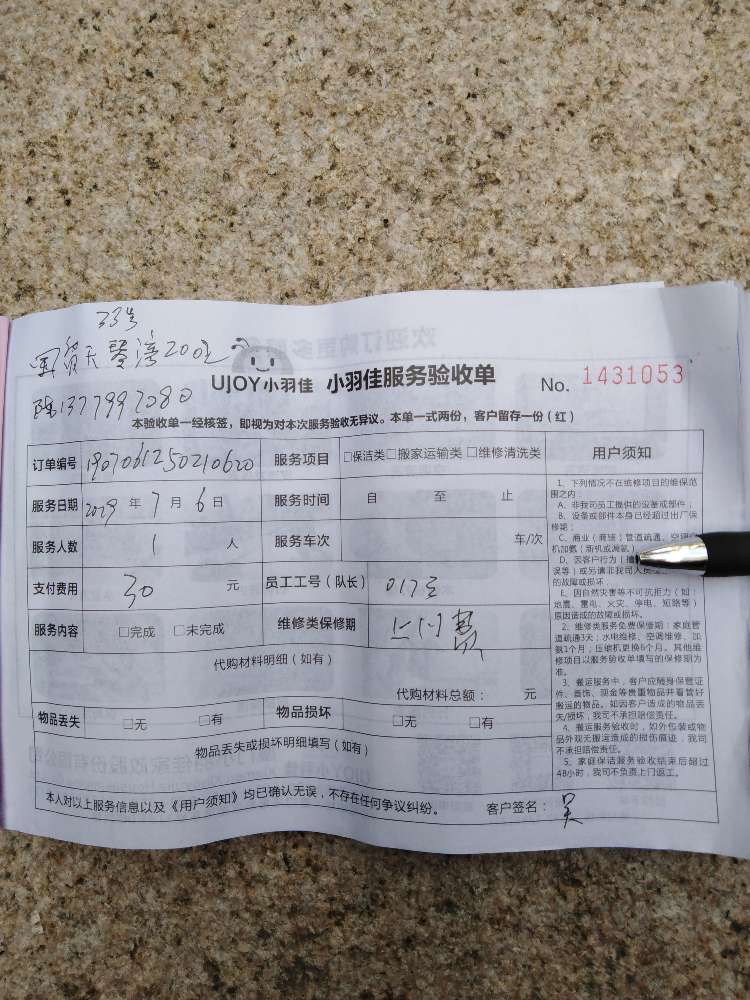 33号
天 湾 20
UJOY小羽佳 小羽佳服务验收单 No. 1431053
陈13779997080
本验收单一经核签，即视为对本次服务验收无异议。本单一式两份，客户留存一份（红）
订单编号 1907061250210620 服务项目 □保洁类□搬家运输类□维修清洗类
服务日期 2019 年 7 月 6 日 服务时间 自 至 止
服务人数 1 人 服务车次 车/次
支付费用 30 元 员工工号（队长） 017
服务内容 □完成 □未完成 维修类保修期 上门费
代购材料明细（如有）
代购材料总额： 元
物品丢失 □无 □有 物品损坏 □无 □有
物品丢失或损坏明细填写（如有）
本人对以上服务信息以及《用户须知》均已确认无误，不存在任何争议纠纷。 客户签名：吴
用户须知
1、下列情况不在维修项目的维保范
围之内：
A、非我司员工提供的设备或部件；
B、设备或部件本身已经超过出厂保
修期；
C、商业（商铺）管道疏通、空调
机加氨（新机或漏氨）
D、因客户行为
误等）或另请非我司人员
的故障或损坏；
E、因自然灾害等不可抗拒力（如：
地震、雷电、火灾、停电、短路等）
原因造成的故障或损坏。
2、维修类服务免费保修期：家庭管
道疏通3天；水电维修、空调维修、加
氨1个月；压缩机更换6个月。其他维
修项目以服务验收单填写的保修期为
准。
3、搬运服务中，客户应随身保管证
件、首饰、现金等贵重物品并看管好
搬运的物品。如因客户造成的物品丢
失/损坏，我司不承担赔偿责任。
4、搬运服务验收时，如外包装或物
品外观无搬运造成的损伤痕迹，我司
不承担赔偿责任。
5、家庭保洁服务验收结束后超过
48小时，我司不负责上门返工。